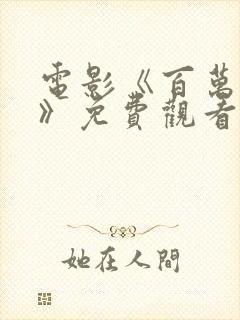 電影《百萬
》免費觀看
她在人間